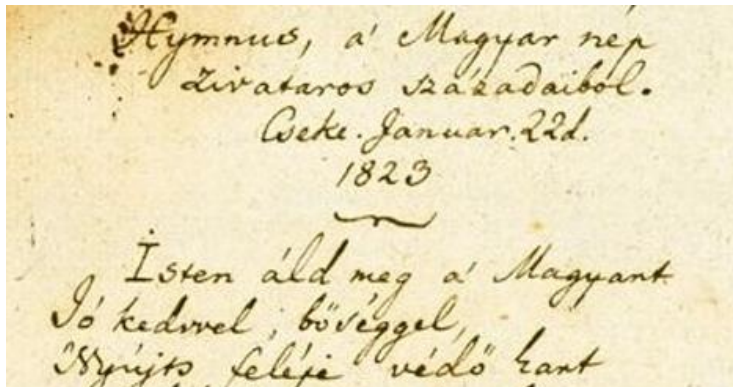 Hymnus, a' Magyar nép
zivataros századaiból.
Cseke. Januar. 22d.
1823
Isten áld meg a' Magyart
Jó kedvvel, bőséggel,
Nyújts feléje védő kart